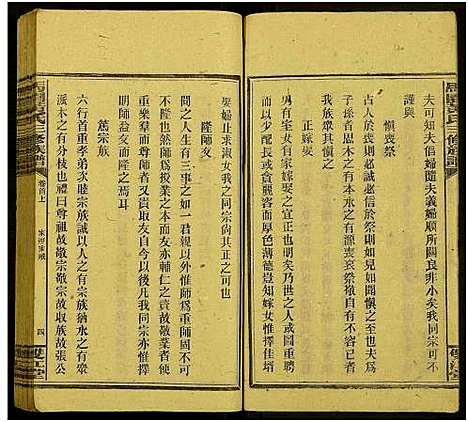 夫可知夫倡婦隨夫義婦順所關良非小矣我同宗可不
謹與
慎喪祭
古人於喪則必誠必信於祭則如見如聞慎之至也夫爲
子孫者思木之有本念水之有源喪哀祭敬自有不容已
正嫁娶
男有室女有家嫁娶之宜正也明矣乃世之人或圖重聘
配以庸兒或貪麗奩而忘厚薄德豈知嫁女惟擇佳壻
娶婦止求淑女我之同宗尚其正之可也
隆師友
間之人生有三事之如一君親以外惟師爲重師固不可
不隆也然師爲授業之本而友亦輔仁之資故敬業者使
重樂羣而尊師者又貴取友自今以後凡我同宗亦惟擇
明師益友而隆之焉耳
篤宗族
六行首重孝弟次睦宗族誠以人之有宗族猶水之有衆
派木之有分枝也禮曰尊祖故敬宗敬宗故收族故張公
氏三修族譜
卷首上
家訓家戒
四